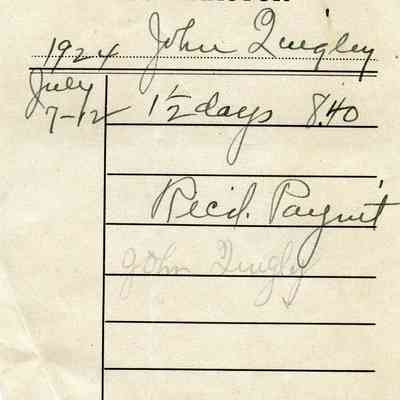 1924 John Quigley
July
7-12 1½ days 8.40
Rec'd. Paym't
John Quigley